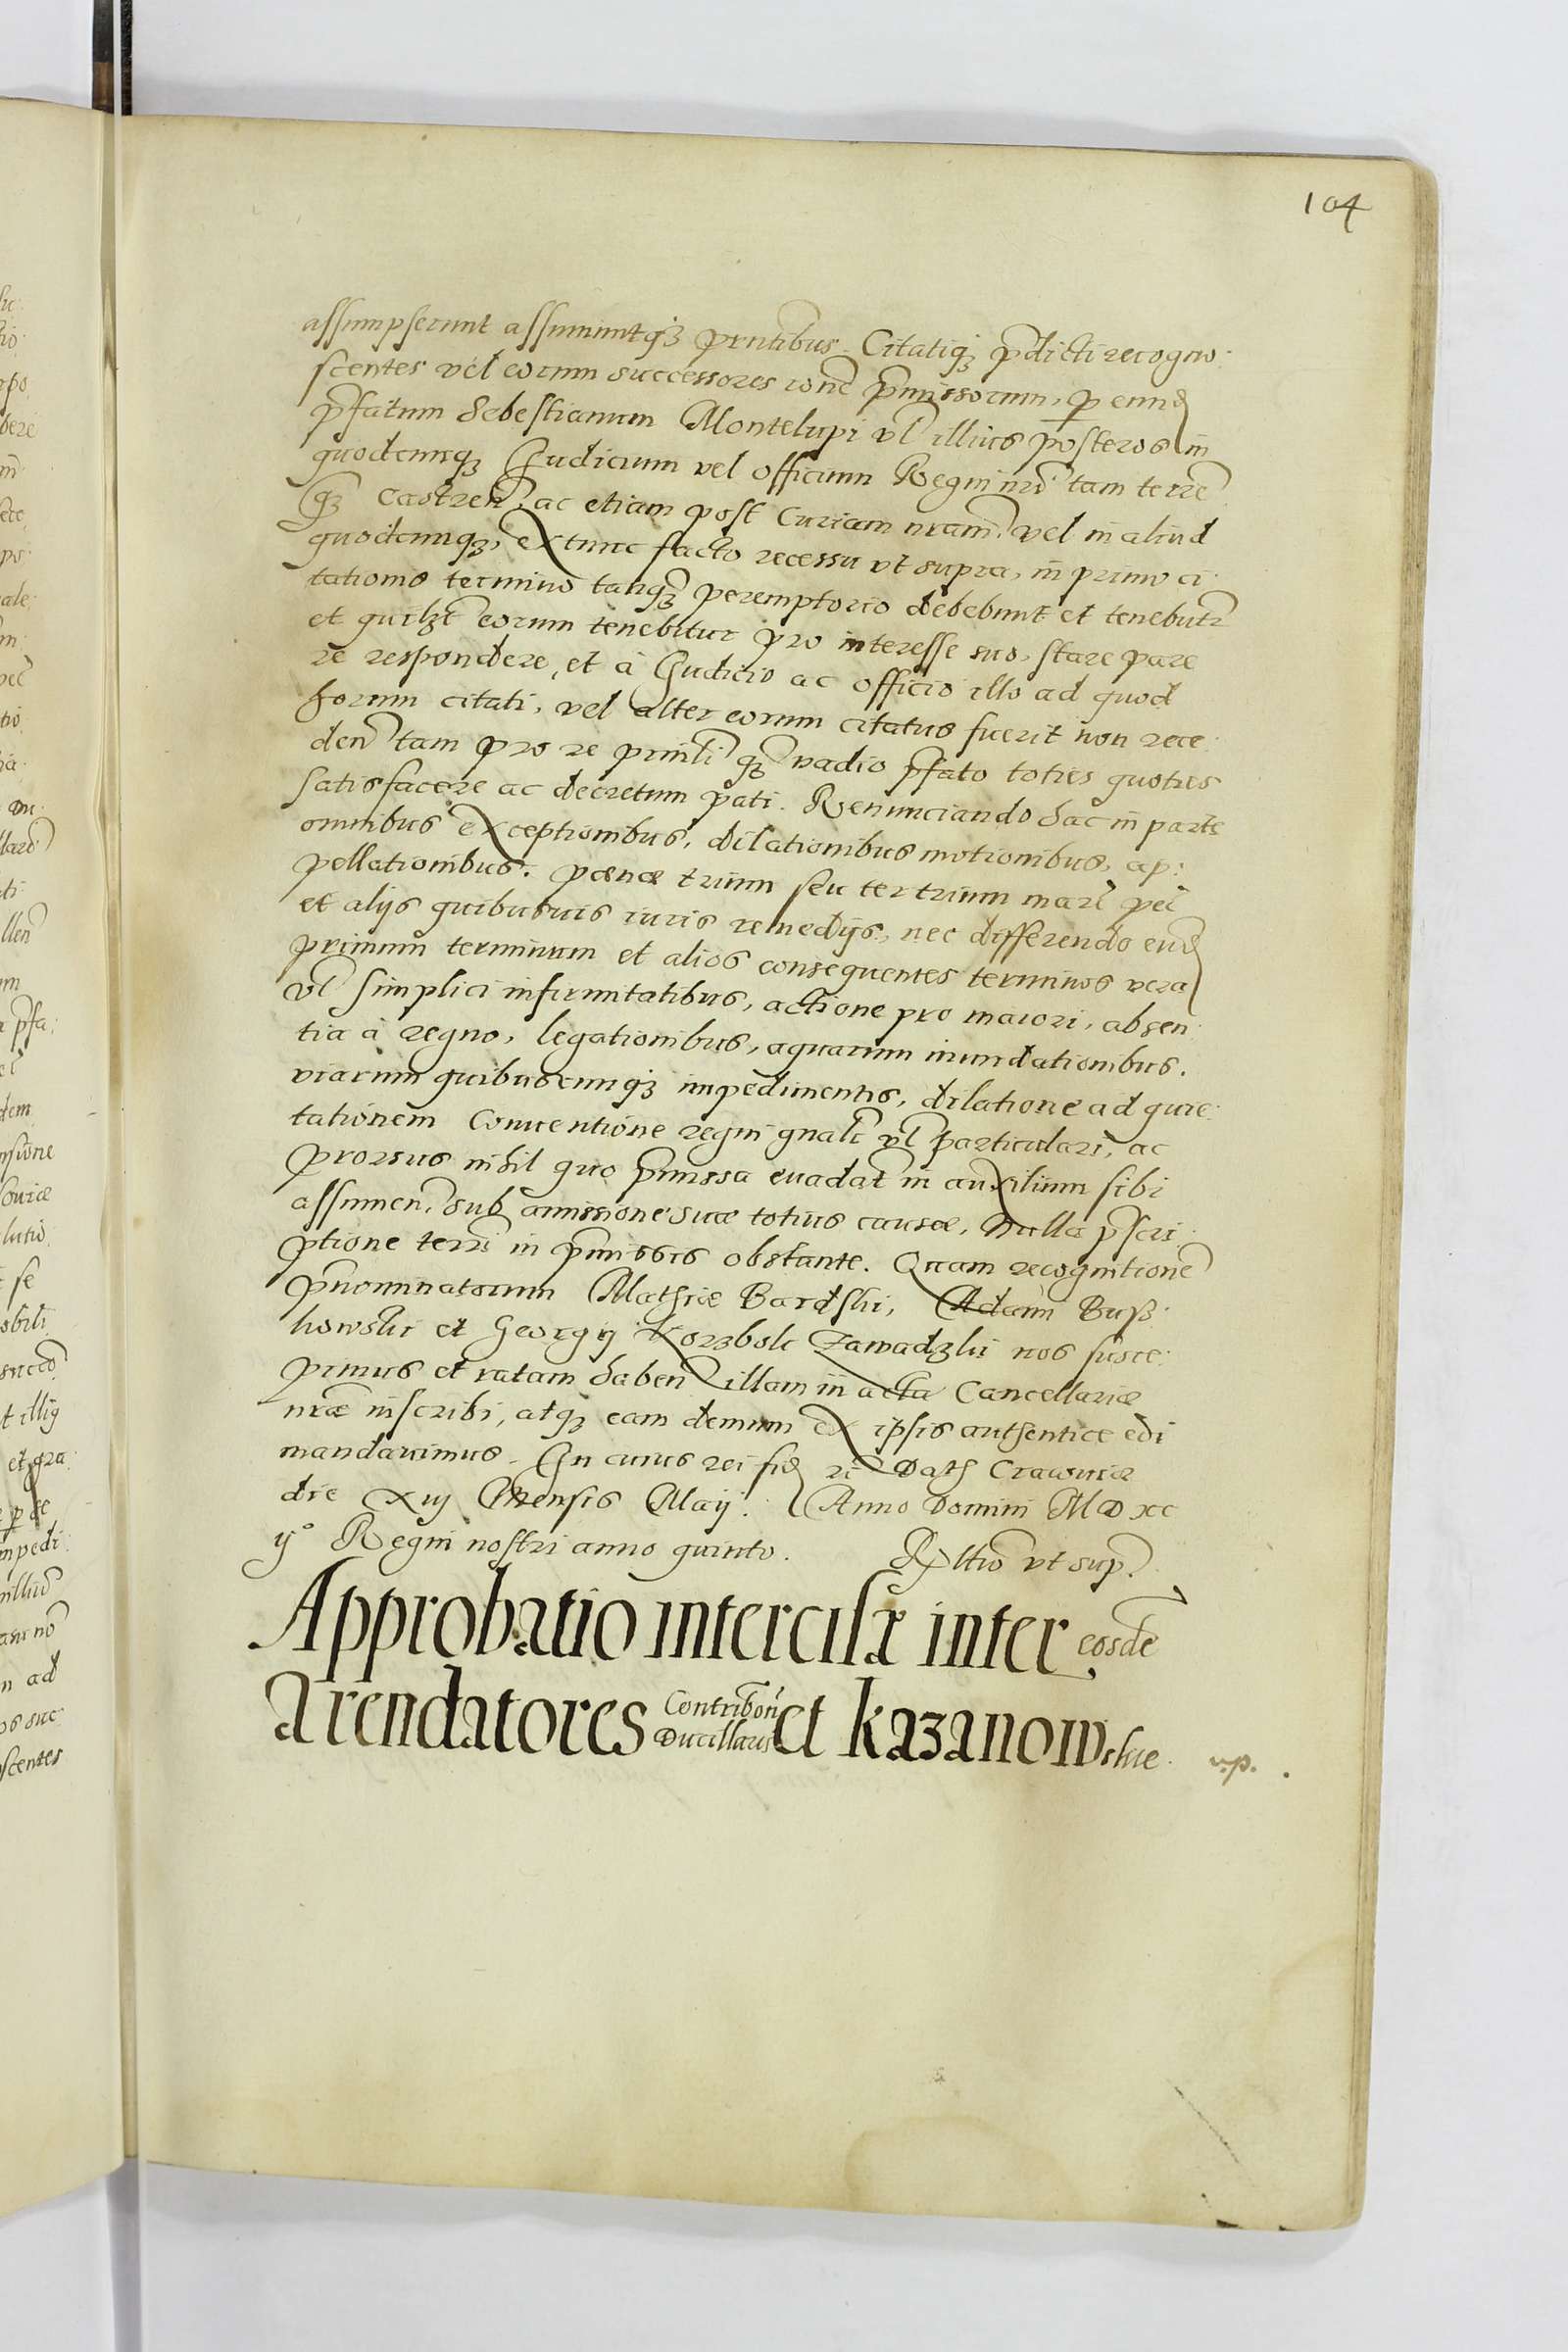 104
assumpserunt assumuntq₃ prntibus. Citatiq₃ pdicti recogno:
scentes vel eorum successores ronē pmissorum, p eund
pfatum Sebestianum Montelupi vl illius posteros in
quodcunq₃ Iudicium vel officium Regni nrī tam terrē
q₃ castren, ac etiam post Curiam nram, vel in aliud
quodcunq₃, extunc facto recessu vt supra, in primo ci:
tationis termino tanq₃ peremptorio debebunt et tenebutr
et quilzt eorum tenebitur pro interesse suo, stare pare
re respondere, et à Iudicio ac officio illo ad quod
horum citati, vel alter eorum citatus fuerit non rece:
den tam pro re prinli q₃ vadio pfato toties quoties
satisfacere ac decretum pati. Renunciando hac in parte
omnibus exceptionibus, dilationibus motionibus, ap:
pellationibus, pœnæ trium seu ter trium marc pec
et alijs quibusuis iuris remedijs, nec differendo eund
primum terminum et alios consequentes terminos vera
vl simplici infirmitatibus, actione pro maiori, absen:
tia à regno, legationibus, aquarum inundationibus.
viarum quibuscunq₃ impedimentis, dilatione ad quie:
tationem Conuentione regni gnali vl particulari, ac
prorsus nihil quo pmissa euadat in auxilium sibi
assumen, sub amissione suæ totius causæ, Nulla pscri:
ptione terri in pmissis obstante. Quam recognitionē
pnominatorum Mathiæ Bardski, Adami Buß:
kowski et Georgij Korzbok Zawadzki nos susce:
pimus et ratam haben illam in acta Cancellariæ
nræ inscribi, atq₃ eam demum ex ipsis authentice edi
mandauimus. In cuius rei fid rc Dath Cracouiæ
die xij Mensis Maij. Anno Domini M D xc
ijº Regni nostri anno quinto. Rltio vt sup.
Approbatio intercisæ inter eosde
Arendatores Contribon Ducillaris et Kazanowskie v.p.